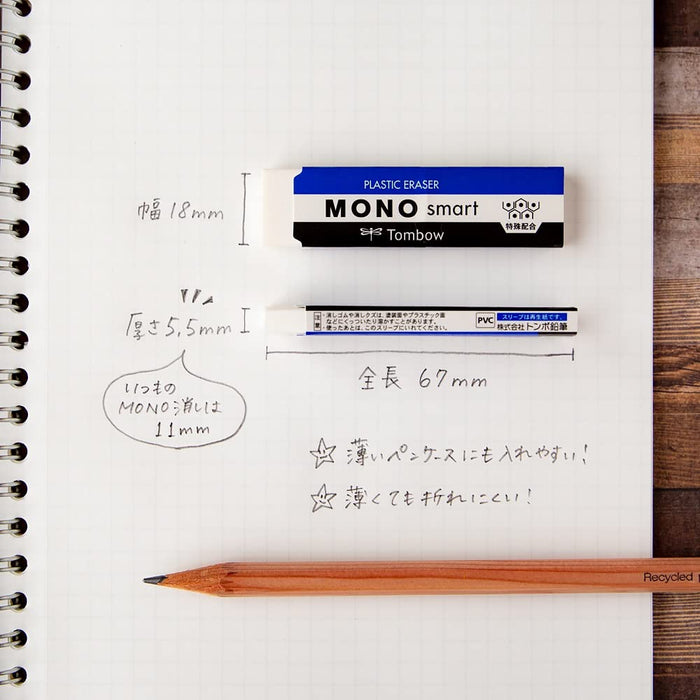 PLASTIC ERASER
MONO smart
特殊配合
Tombow
幅 18mm
注意
・消しゴムや消しクズは、塗装面やプラスチック面
などにくっついたり溶かすことがあります。
・使ったあとは、このスリーブにいれてください。
PVC
スリーブは再生紙です。
株式会社トンボ鉛筆
厚さ5.5mm
全長 67mm
いつもの
MONO消しは
11mm
薄いペンケースにも入れやすい!
薄くても折れにくい!
Recycled